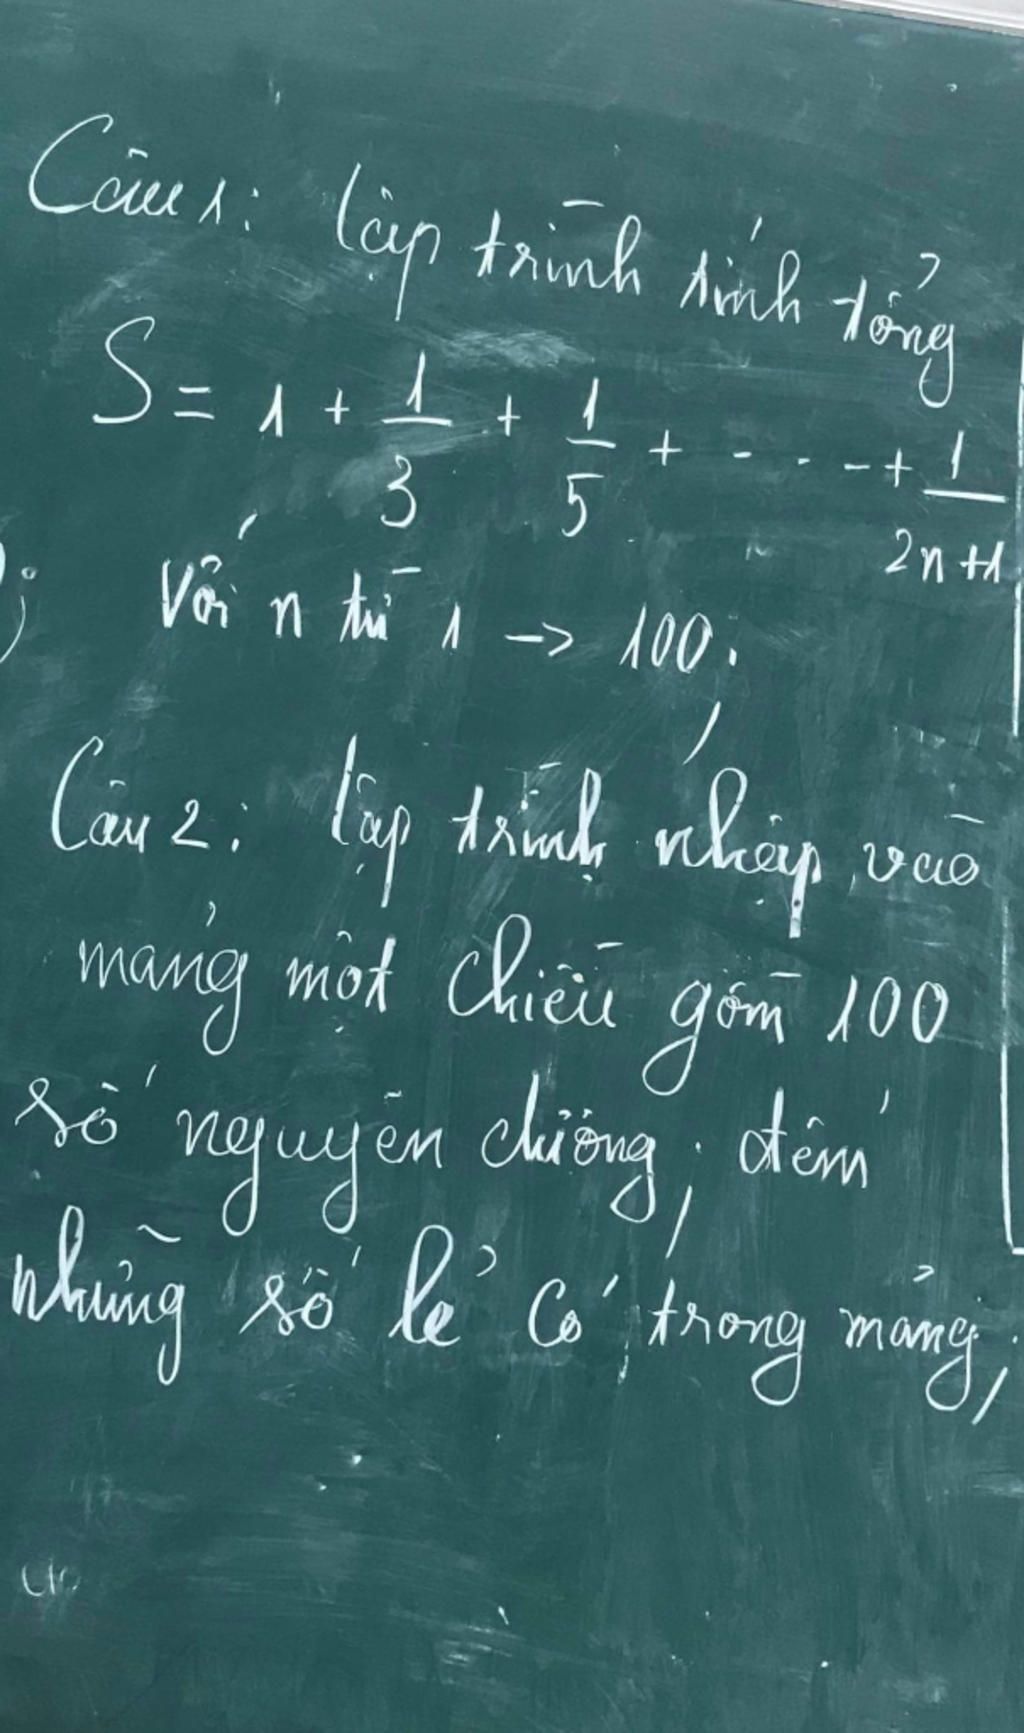 Câu 1: lập trình tính tổng
S = 1 + 1/3 + 1/5 + - - - - + 1/2n+1
Với n từ 1 -> 100.
Câu 2: lập trình nhập vào
mảng một chiều gồm 100
số nguyên dương, đếm
những số lẻ có trong mảng.